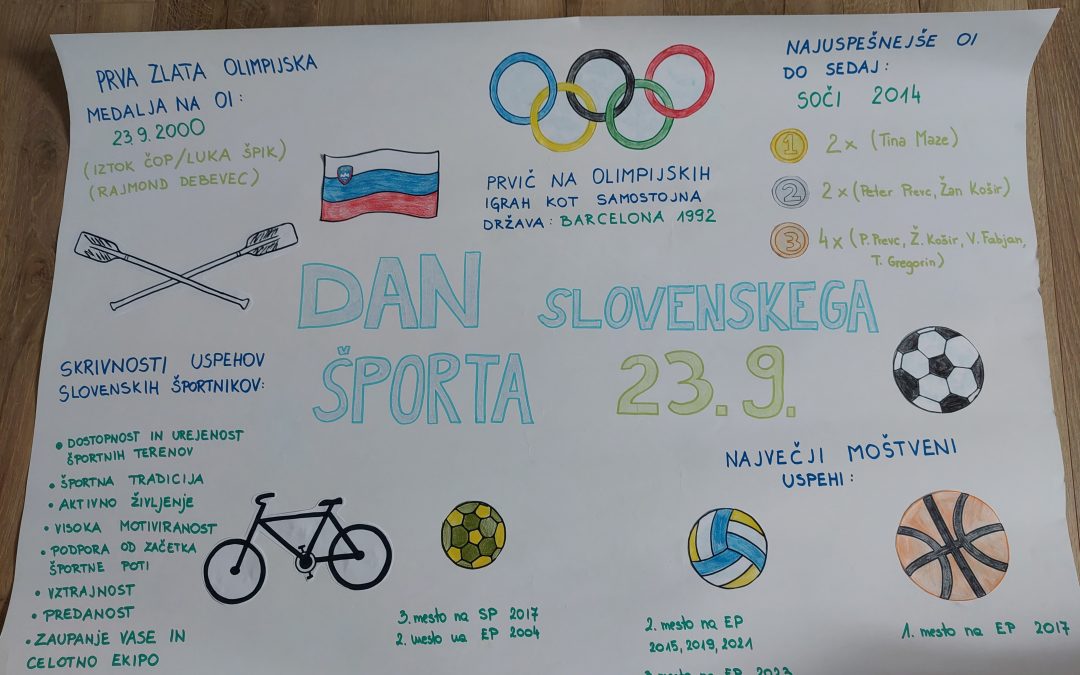 PRVA ZLATA OLIMPIJSKA
MEDALJA NA OI:
23.9.2000
(IZTOK ČOP/LUKA ŠPIK)
(RAJMOND DEBEVEC)
PRVIČ NA OLIMPIJSKIH
IGRAH KOT SAMOSTOJNA
DRŽAVA: BARCELONA 1992
NAJUSPEŠNEJŠE OI
DO SEDAJ:
SOČI 2014
1 2x (Tina Maze)
2 2x (Peter Prevc, Žan Košir)
3 4x (P. Prevc, Ž. Košir, V. Fabjan,
T. Gregorin)
DAN SLOVENSKEGA
ŠPORTA 23.9.
SKRIVNOSTI USPEHOV
SLOVENSKIH ŠPORTNIKOV:
• DOSTOPNOST IN UREJENOST
ŠPORTNIH TERENOV
• ŠPORTNA TRADICIJA
• AKTIVNO ŽIVLJENJE
• VISOKA MOTIVIRANOST
• PODPORA OD ZAČETKA
ŠPORTNE POTI
• VZTRAJNOST
• PREDANOST
• ZAUPANJE VASE IN
CELOTNO EKIPO
NAJVEČJI MOŠTVENI
USPEHI:
3. mesto na SP 2017
2. mesto na EP 2004
2. mesto na EP
2015, 2019, 2021
3. mesto na EP 2023
1. mesto na EP 2017